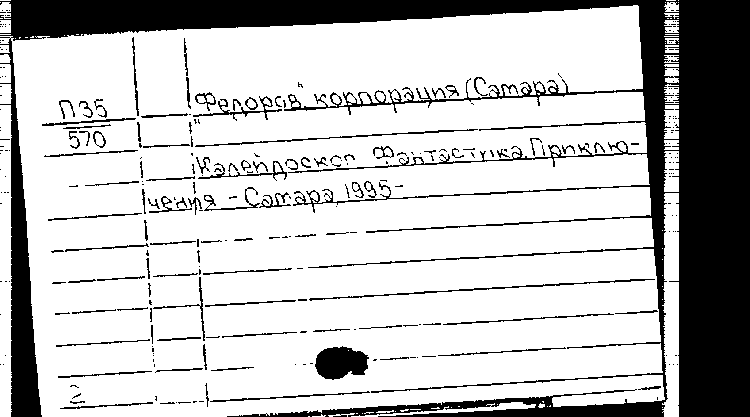 П35
570
"Федоров" корпорация (Самара)
Калейдоскоп Фантастика. Приклю-
чения - Самара, 1995-
2